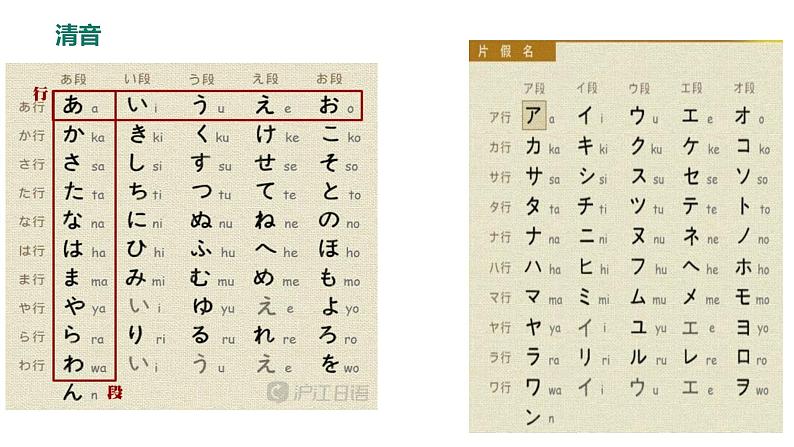 清音
あ段 い段 う段 え段 お段
行
あ行 あ a い i う u え e お o
か行 か ka き ki く ku け ke こ ko
さ行 さ sa し si す su せ se そ so
た行 た ta ち ti つ tu て te と to
な行 な na に ni ぬ nu ね ne の no
は行 は ha ひ hi ふ hu へ he ほ ho
ま行 ま ma み mi む mu め me も mo
や行 や ya い i ゆ yu え e よ yo
ら行 ら ra り ri る ru れ re ろ ro
わ行 わ wa い i う u え e を wo
ん n 段
沪江日语
片假名
ア段 イ段 ウ段 エ段 オ段
ア行 ア a イ i ウ u エ e オ o
カ行 カ ka キ ki ク ku ケ ke コ ko
サ行 サ sa シ si ス su セ se ソ so
タ行 タ ta チ ti ツ tu テ te ト to
ナ行 ナ na ニ ni ヌ nu ネ ne ノ no
ハ行 ハ ha ヒ hi フ hu ヘ he ホ ho
マ行 マ ma ミ mi ム mu メ me モ mo
ヤ行 ヤ ya イ i ユ yu エ e ヨ yo
ラ行 ラ ra リ ri ル ru レ re ロ ro
ワ行 ワ wa イ i ウ u エ e ヲ wo
ン n